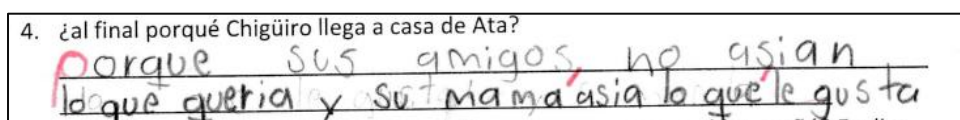 4. ¿al final porqué Chigüiro llega a casa de Ata?
porque sus amigos, no asian
lo que queria y su mama asia lo que le gusta